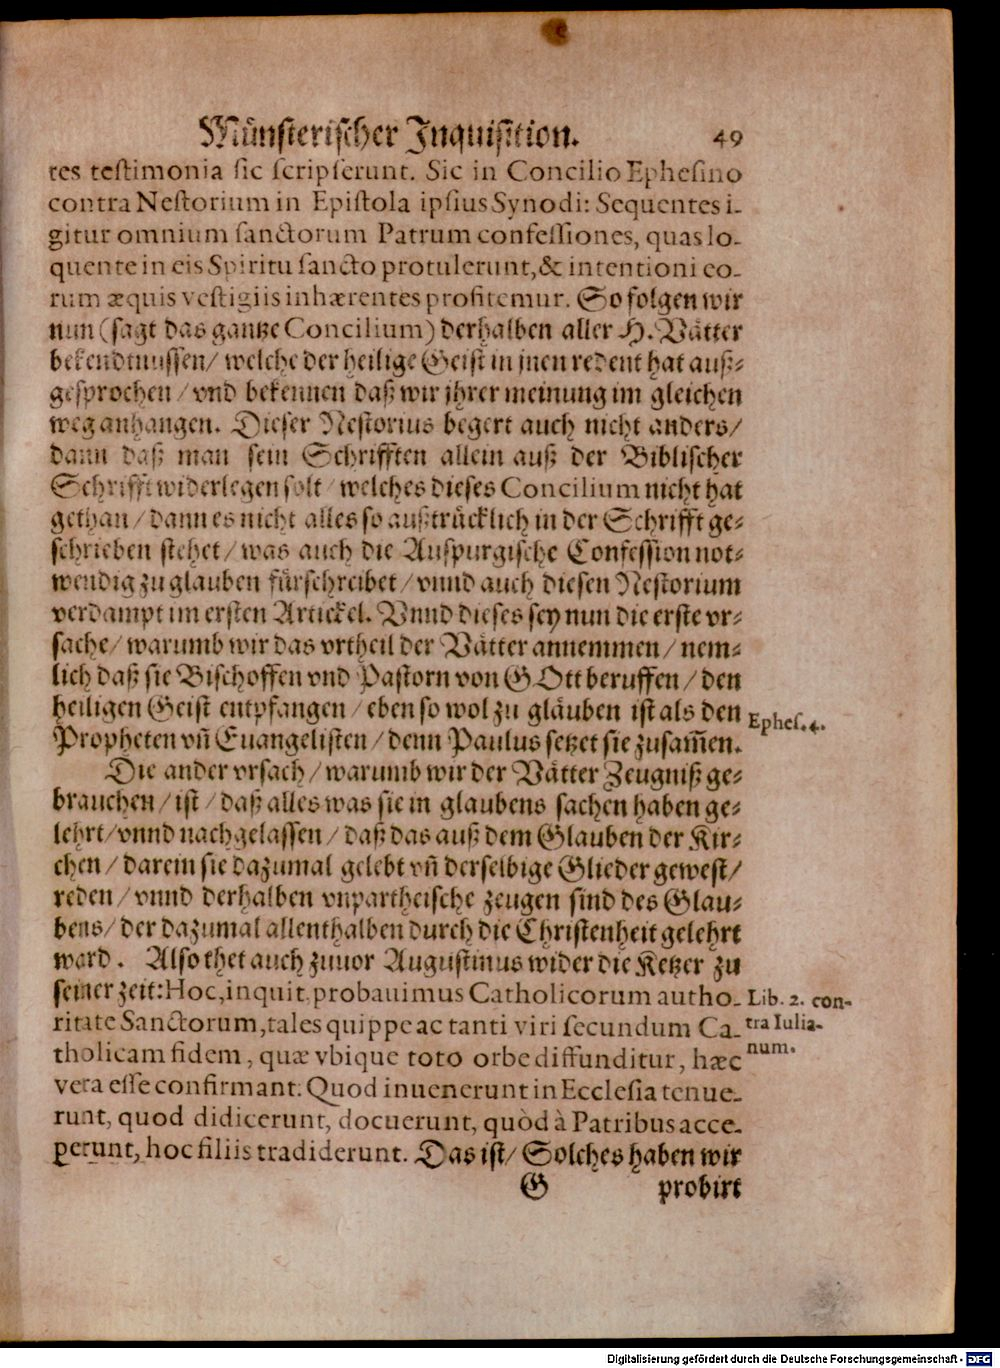 Münsterischer Inquisition. 49
tes testimonia sic scripserunt. Sic in Concilio Ephesino
contra Nestorium in Epistola ipsius Synodi: Sequentes i-
gitur omnium sanctorum Patrum confessiones, quas lo-
quente in eis Spiritu sancto protulerunt, & intentioni eo-
rum æquis vestigiis inhærentes profitemur. So folgen wir
nun (sagt das gantze Concilium) derhalben aller H. Vätter
bekendtnussen/ welche der heilige Geist in jnen redent hat auß-
gesprochen/ vnd bekennen daß wir jhrer meinung im gleichen
weg anhangen. Dieser Nestorius begert auch nicht anders/
dann daß man sein Schrifften allein auß der Biblischer
Schrifft widerlegen solt/ welches dieses Concilium nicht hat
gethan/ dann es nicht alles so außtrücklich in der Schrifft ge-
schrieben stehet/ was auch die Auspurgische Confession not-
wendig zu glauben fürschreibet/ vnnd auch diesen Nestorium
verdampt im ersten Artickel. Vnnd dieses sey nun die erste vr-
sache/ warumb wir das vrtheil der Vätter annemmen/ nem-
lich daß sie Bischoffen vnd Pastorn von GOtt beruffen/ den
heiligen Geist entpfangen/ eben so wol zu gläuben ist als den
Propheten vñ Euangelisten/ denn Paulus setzet sie zusam̃en.
Ephes. 4.
Die ander vrsach/ warumb wir der Vätter Zeugniß ge-
brauchen/ ist/ daß alles was sie in glaubens sachen haben ge-
lehrt/ vnnd nachgelassen/ daß das auß dem Glauben der Kir-
chen/ darein sie dazumal gelebt vñ derselbige Glieder gewest/
reden/ vnnd derhalben vnpartheische zeugen sind des Glau-
bens/ der dazumal allenthalben durch die Christenheit gelehrt
ward. Also thet auch zuuor Augustinus wider die Ketzer zu
seiner zeit: Hoc, inquit, probauimus Catholicorum autho-
ritate Sanctorum, tales quippe ac tanti viri secundum Ca-
tholicam fidem, quæ vbique toto orbe diffunditur, hæc
vera esse confirmant. Quod inuenerunt in Ecclesia tenue-
runt, quod didicerunt, docuerunt, quòd à Patribus acce-
perunt, hoc filiis tradiderunt. Das ist/ Solches haben wir
Lib. 2. con-
tra Iulia-
num.
G probirt
Digitalisierung gefördert durch die Deutsche Forschungsgemeinschaft - DFG